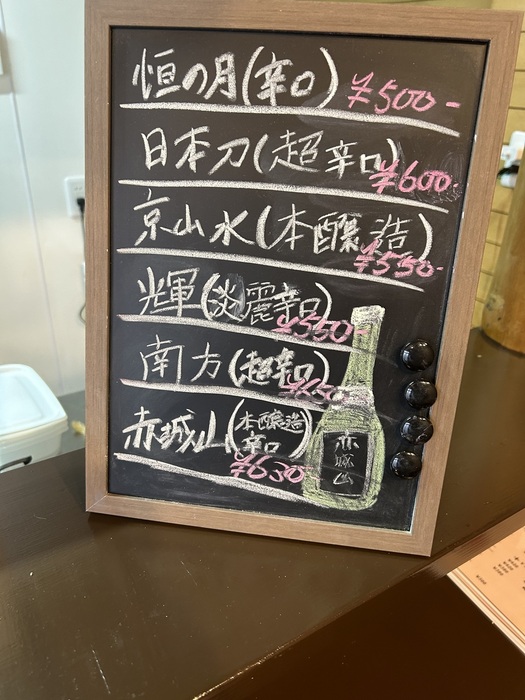 恒の月(辛口) ¥500-
日本刀(超辛口) ¥600-
京山水(本醸造) ¥550-
輝(淡麗辛口) ¥550-
南方(超辛口)
赤城山(本醸造 辛口) ¥630-
赤城山